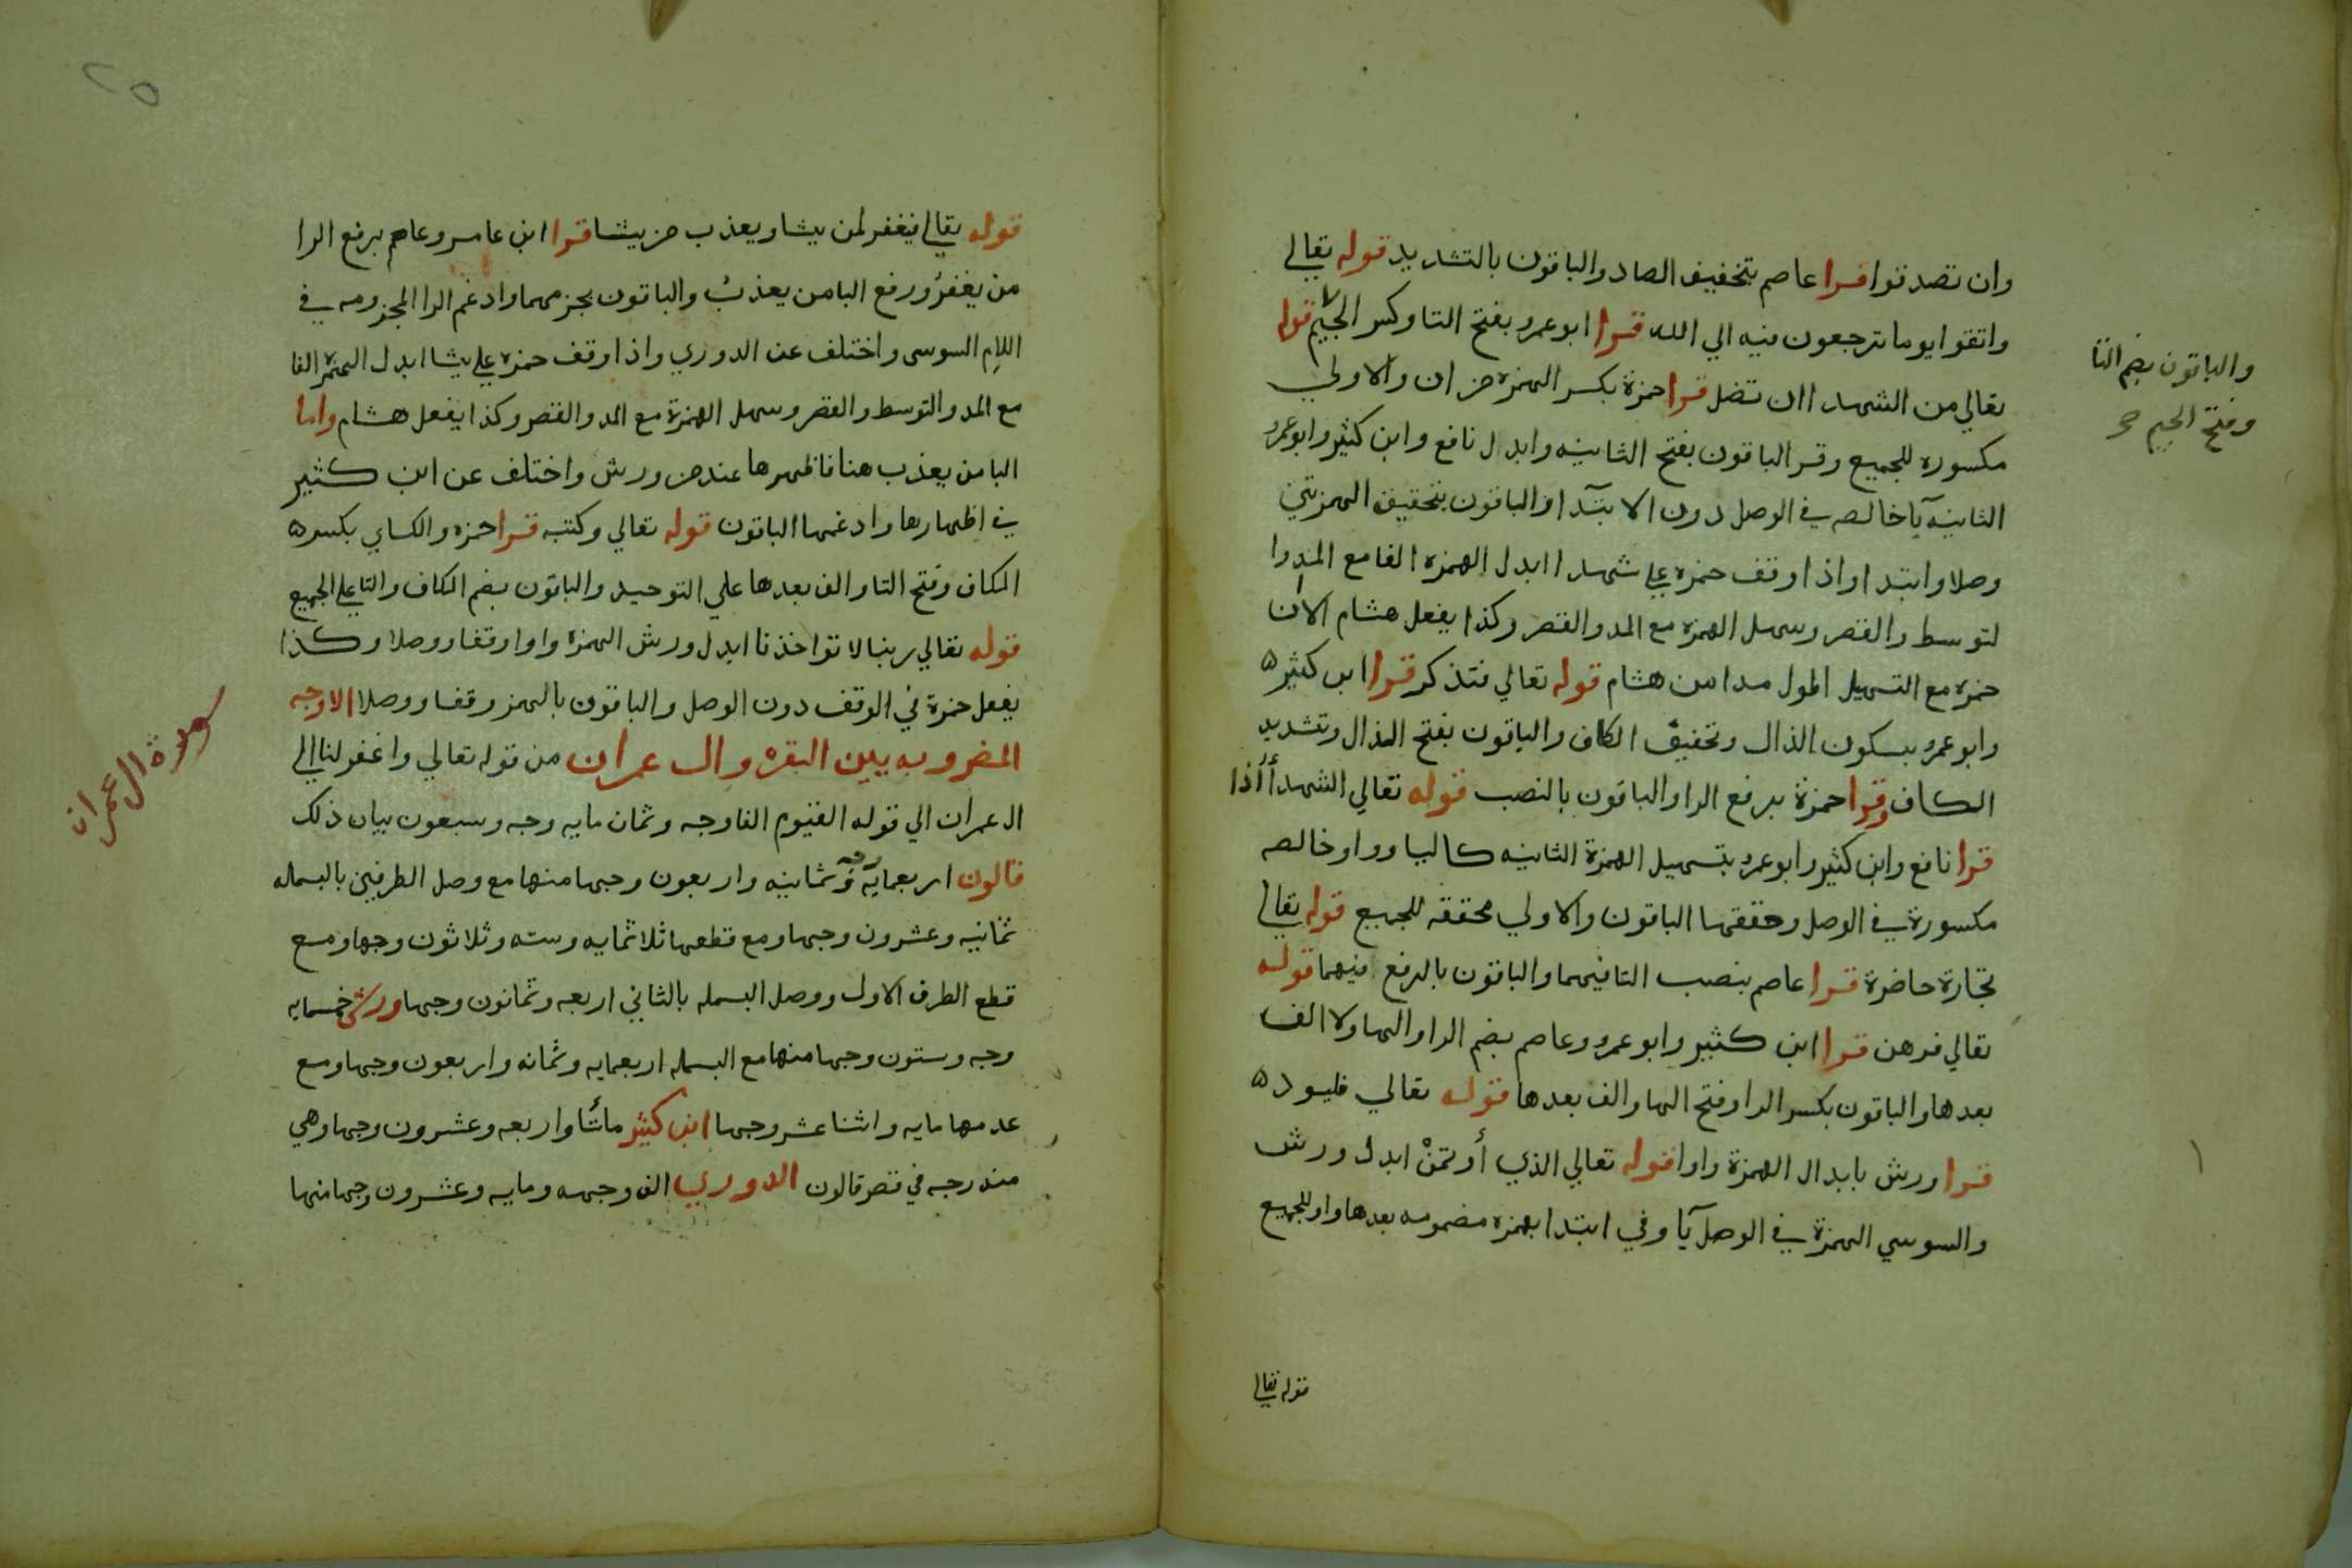 وان تصدقوا قرا عاصم بتخفيف الصاد والباقون بالتشديد قوله تعالي
واتقوا يوما ترجعون فيه الي الله قرا ابو عمرو بفتح التا وكسر الجيم قوله
والباقون بضم التا
وفتح الجيم صح
تعالي من الشهدا ان تضل قرا حمزة بكسر الهمزه من ان والاولي
مكسوره للجميع وقرا الباقون بفتح الثانيه وابدل نافع وابن كثير وابو عمرو
الثانيه يآ خالصه في الوصل دون الابتدآ والباقون بتحقيق الهمزتين
وصلا وابتدا واذا وقف حمزه علي شهدا ابدل الهمزه الفا مع المد وا
لتوسط والقصر وسهل الهمزه مع المد والقصر وكذا يفعل هشام الا ان
حمزه مع التسهيل اطول مدا من هشام قوله تعالي فتذكر قرا ابن كثيره
وابو عمرو بسكون الذال وتخفيف الكاف والباقون بفتح الذال وتشديد
الكاف وقرا حمزة برفع الرا والباقون بالنصب قوله تعالي الشهدأ أذا
قرا نافع وابن كثير وابو عمرو بتسهيل الهمزة الثانيه كاليا وواو خالصه
مكسورة في الوصل وحققها الباقون والاولي محققه للجميع قوله تعالي
تجارة حاضرة قرا عاصم بنصب التا فيهما والباقون بالرفع فيهما قوله
تعالي فرهن قرا ابن كثير وابو عمرو وعاصم بضم الرا والها ولا الف
بعدها والباقون بكسر الرا وفتح الها والف بعدها قوله تعالي فليود ه
قرا ورش بابدال الهمزة واوا قوله تعالي الذي أوتمنْ ابدل ورش
والسوسي الهمزة في الوصل يآ وفي ابتدا بهمزه مضمومه بعدها واو للجميع
قوله تعالي
٢٥
قوله تعالي فيغفر لمن يشا ويعذب من يشا قرا ابن عامر وعاصم برفع الرا
من يغفرُ ورفع البا من يعذبُ والباقون بجزمهما وادغم الرا المجزومه في
اللام السوسي واختلف عن الدوري واذا وقف حمزه علي يشا ابدل الهمزة الفا
مع المد والتوسط والقصر وسهل الهمزة مع المد والقصر وكذا يفعل هشام واما
البا من يعذب هنا فاظهرها عند من ورش واختلف عن ابن كثير
في اظهارها وادغمها الباقون قوله تعالي وكتبه قرا حمزه والكساي بكسره
الكاف وفتح التا والف بعدها علي التوحيد والباقون بضم الكاف والتا علي الجميع
قوله تعالي ربنا لا تواخذنا ابدل ورش الهمزة واوا وقفا ووصلا وكذا
يفعل حمزة في الوقف دون الوصل والباقون بالهمز وقفا ووصلا الاوجه
المضروبه بين البقره وال عمران من قوله تعالي واغفر لنا الي
سورة ال عمران
ال عمران الي قوله القيوم الفا وجه وثمان مايه وجه وسبعون بيان ذلك
قالون اربعمايه وثمانيه واربعون وجها منها مع وصل الطرفين بالبسمله
ثمانيه وعشرون وجها ومع قطعها ثلاثمايه وسته وثلاثون وجها ومع
قطع الطرف الاول ووصل البسمله بالثاني اربعه وثمانون وجها ورش خمسمايه
وجه وستون وجها منها مع البسمله اربعمايه وثمانه واربعون وجها ومع
عدمها مايه واثنا عشر وجها ابن كثير مائتا واربعه وعشرون وجها وهي
مندرجه في قصر قالون الدوري الف وجهه ومايه وعشرون وجها منها